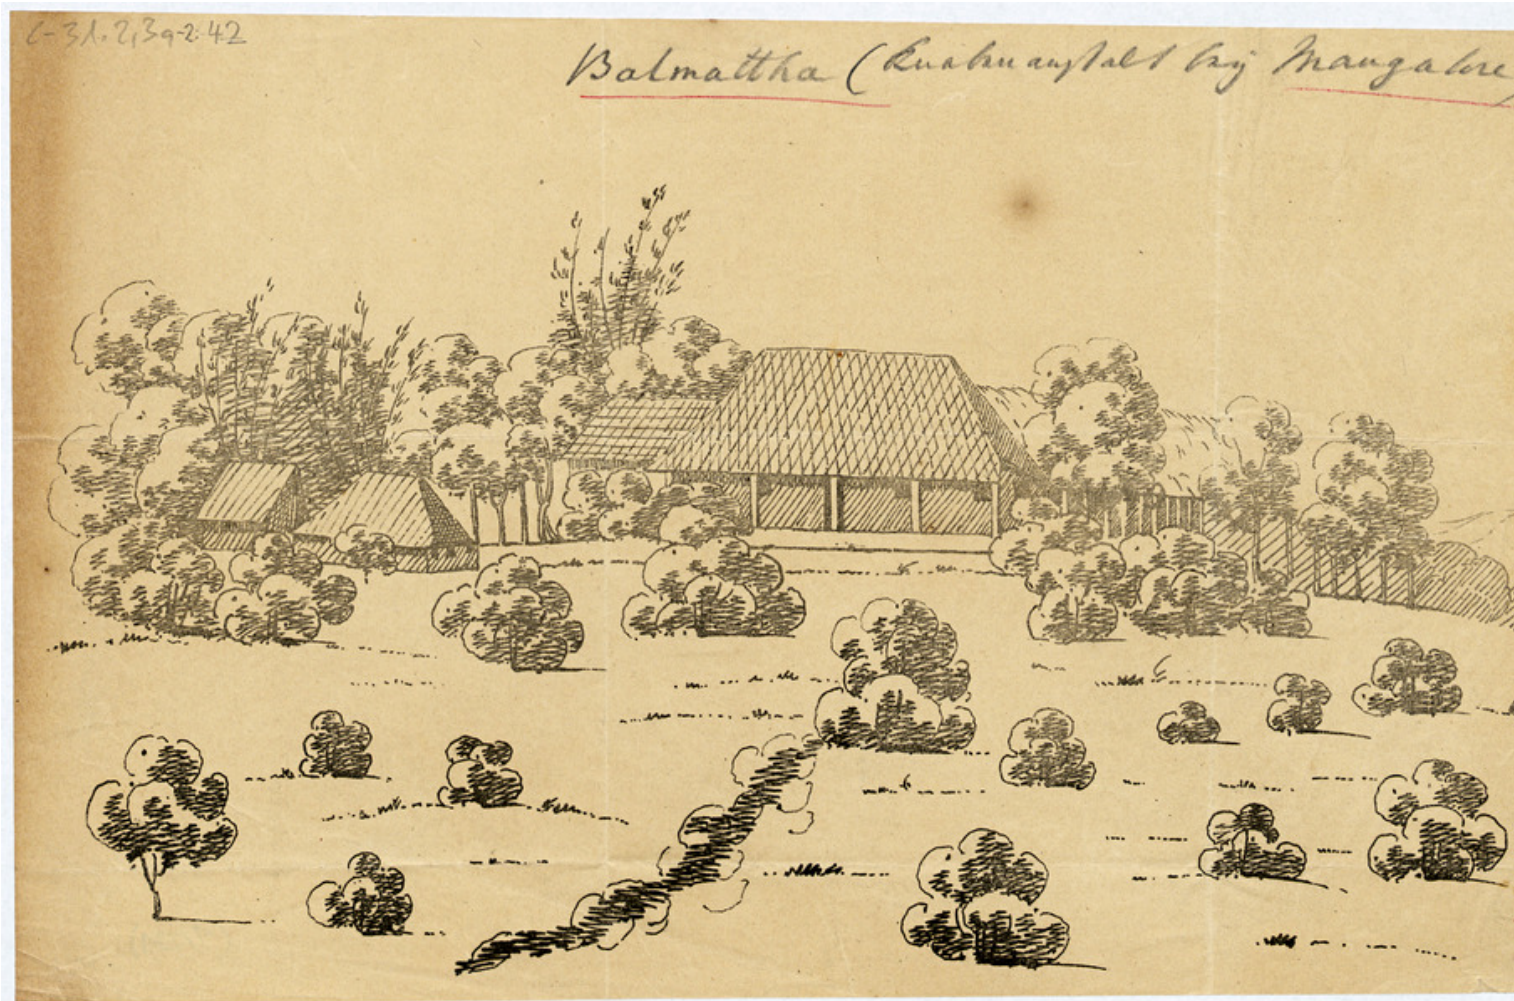 C-31.2,3a-2.42
Balmattha (Knabenanstalt bey Mangalore)